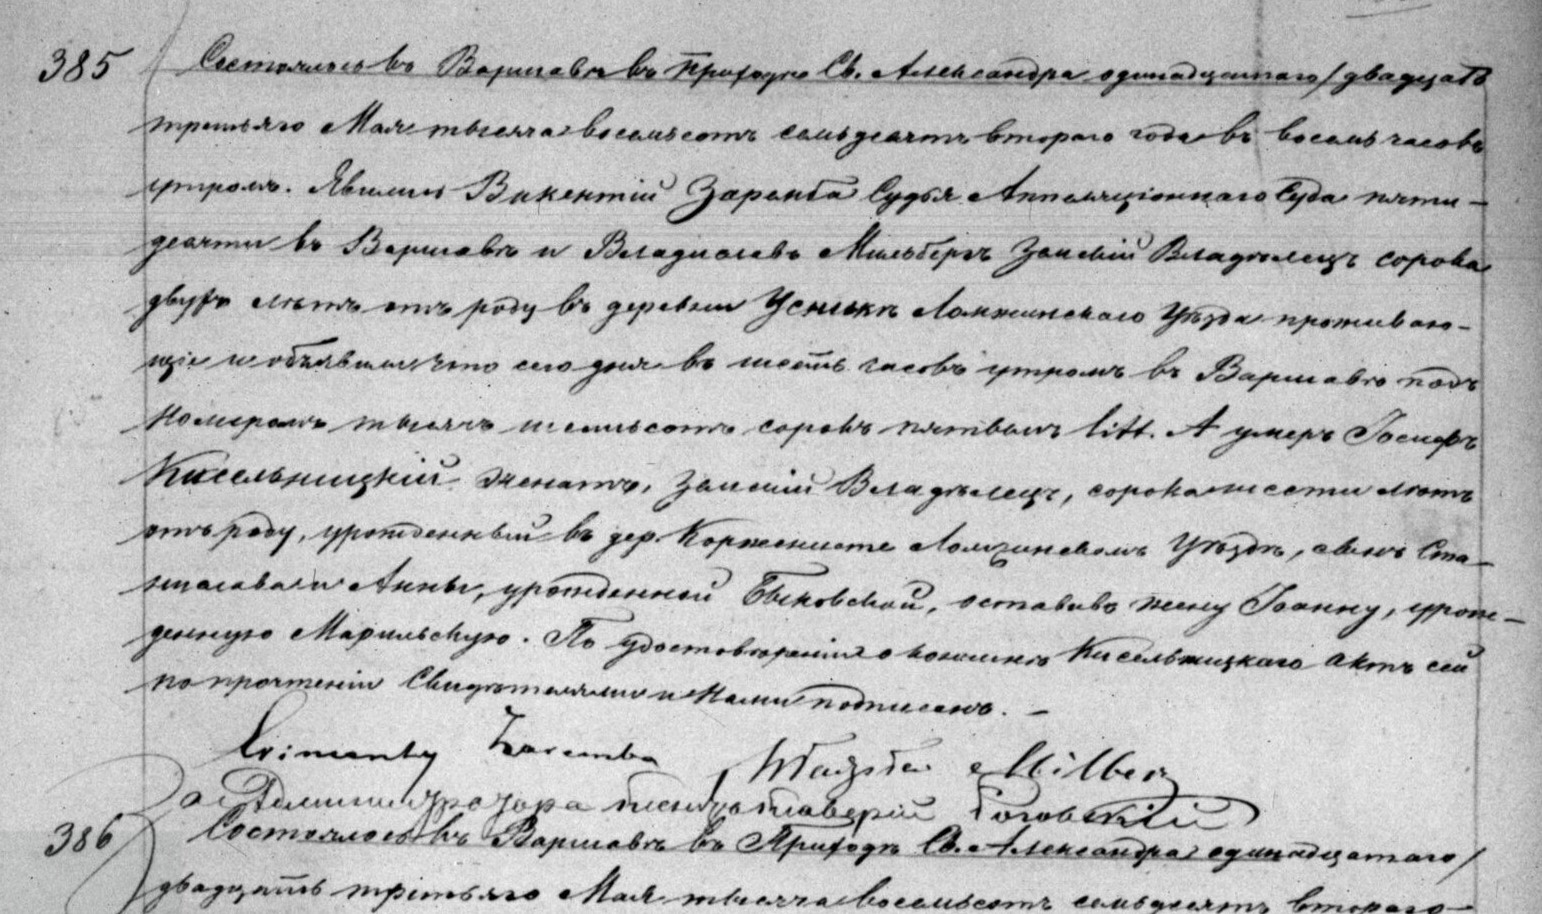 385 Состоялось въ Варшавѣ въ приходѣ Св. Александра одинадцатаго/двадцать
третьяго Мая тысяча восемьсотъ семьдесятъ втораго года въ восемь часовъ
утромъ. Явились Викентій Заремба Судья Аппеляціоннаго Суда пяти-
десяти въ Варшавѣ и Владиславъ Мильбергъ Земскій Владѣлецъ сорока
двухъ лѣтъ отъ роду въ деревни Усникъ Ломжинскаго Уѣзда проживаю-
щіе и объявили что сего дня въ шесть часовъ утромъ въ Варшавѣ подъ
Номеромъ тысяча шестьсотъ сорокъ пятымъ litt. А умеръ Іосифъ
Кисельницкій женатъ, Земскій Владѣлецъ, сорока шести лѣтъ
отъ роду, урожденный въ дер. Корженисте Ломжинскомъ Уѣздѣ, сынъ Ста-
нислава и Анны, урожденной Быковской, оставивъ жену Іоанну, урож-
денную Марильскую. По удостовѣреніи о кончинѣ Кисельницкаго Актъ сей
по прочтеніи Свидѣтелями и Нами подписанъ. —
Wincenty Zaremba Milberg
За Администратора
386 Состоялось въ Варшавѣ въ Приходѣ Св. Александра одинадцатаго/
двадцать третьяго Мая тысяча восемьсотъ семьдесятъ втораго